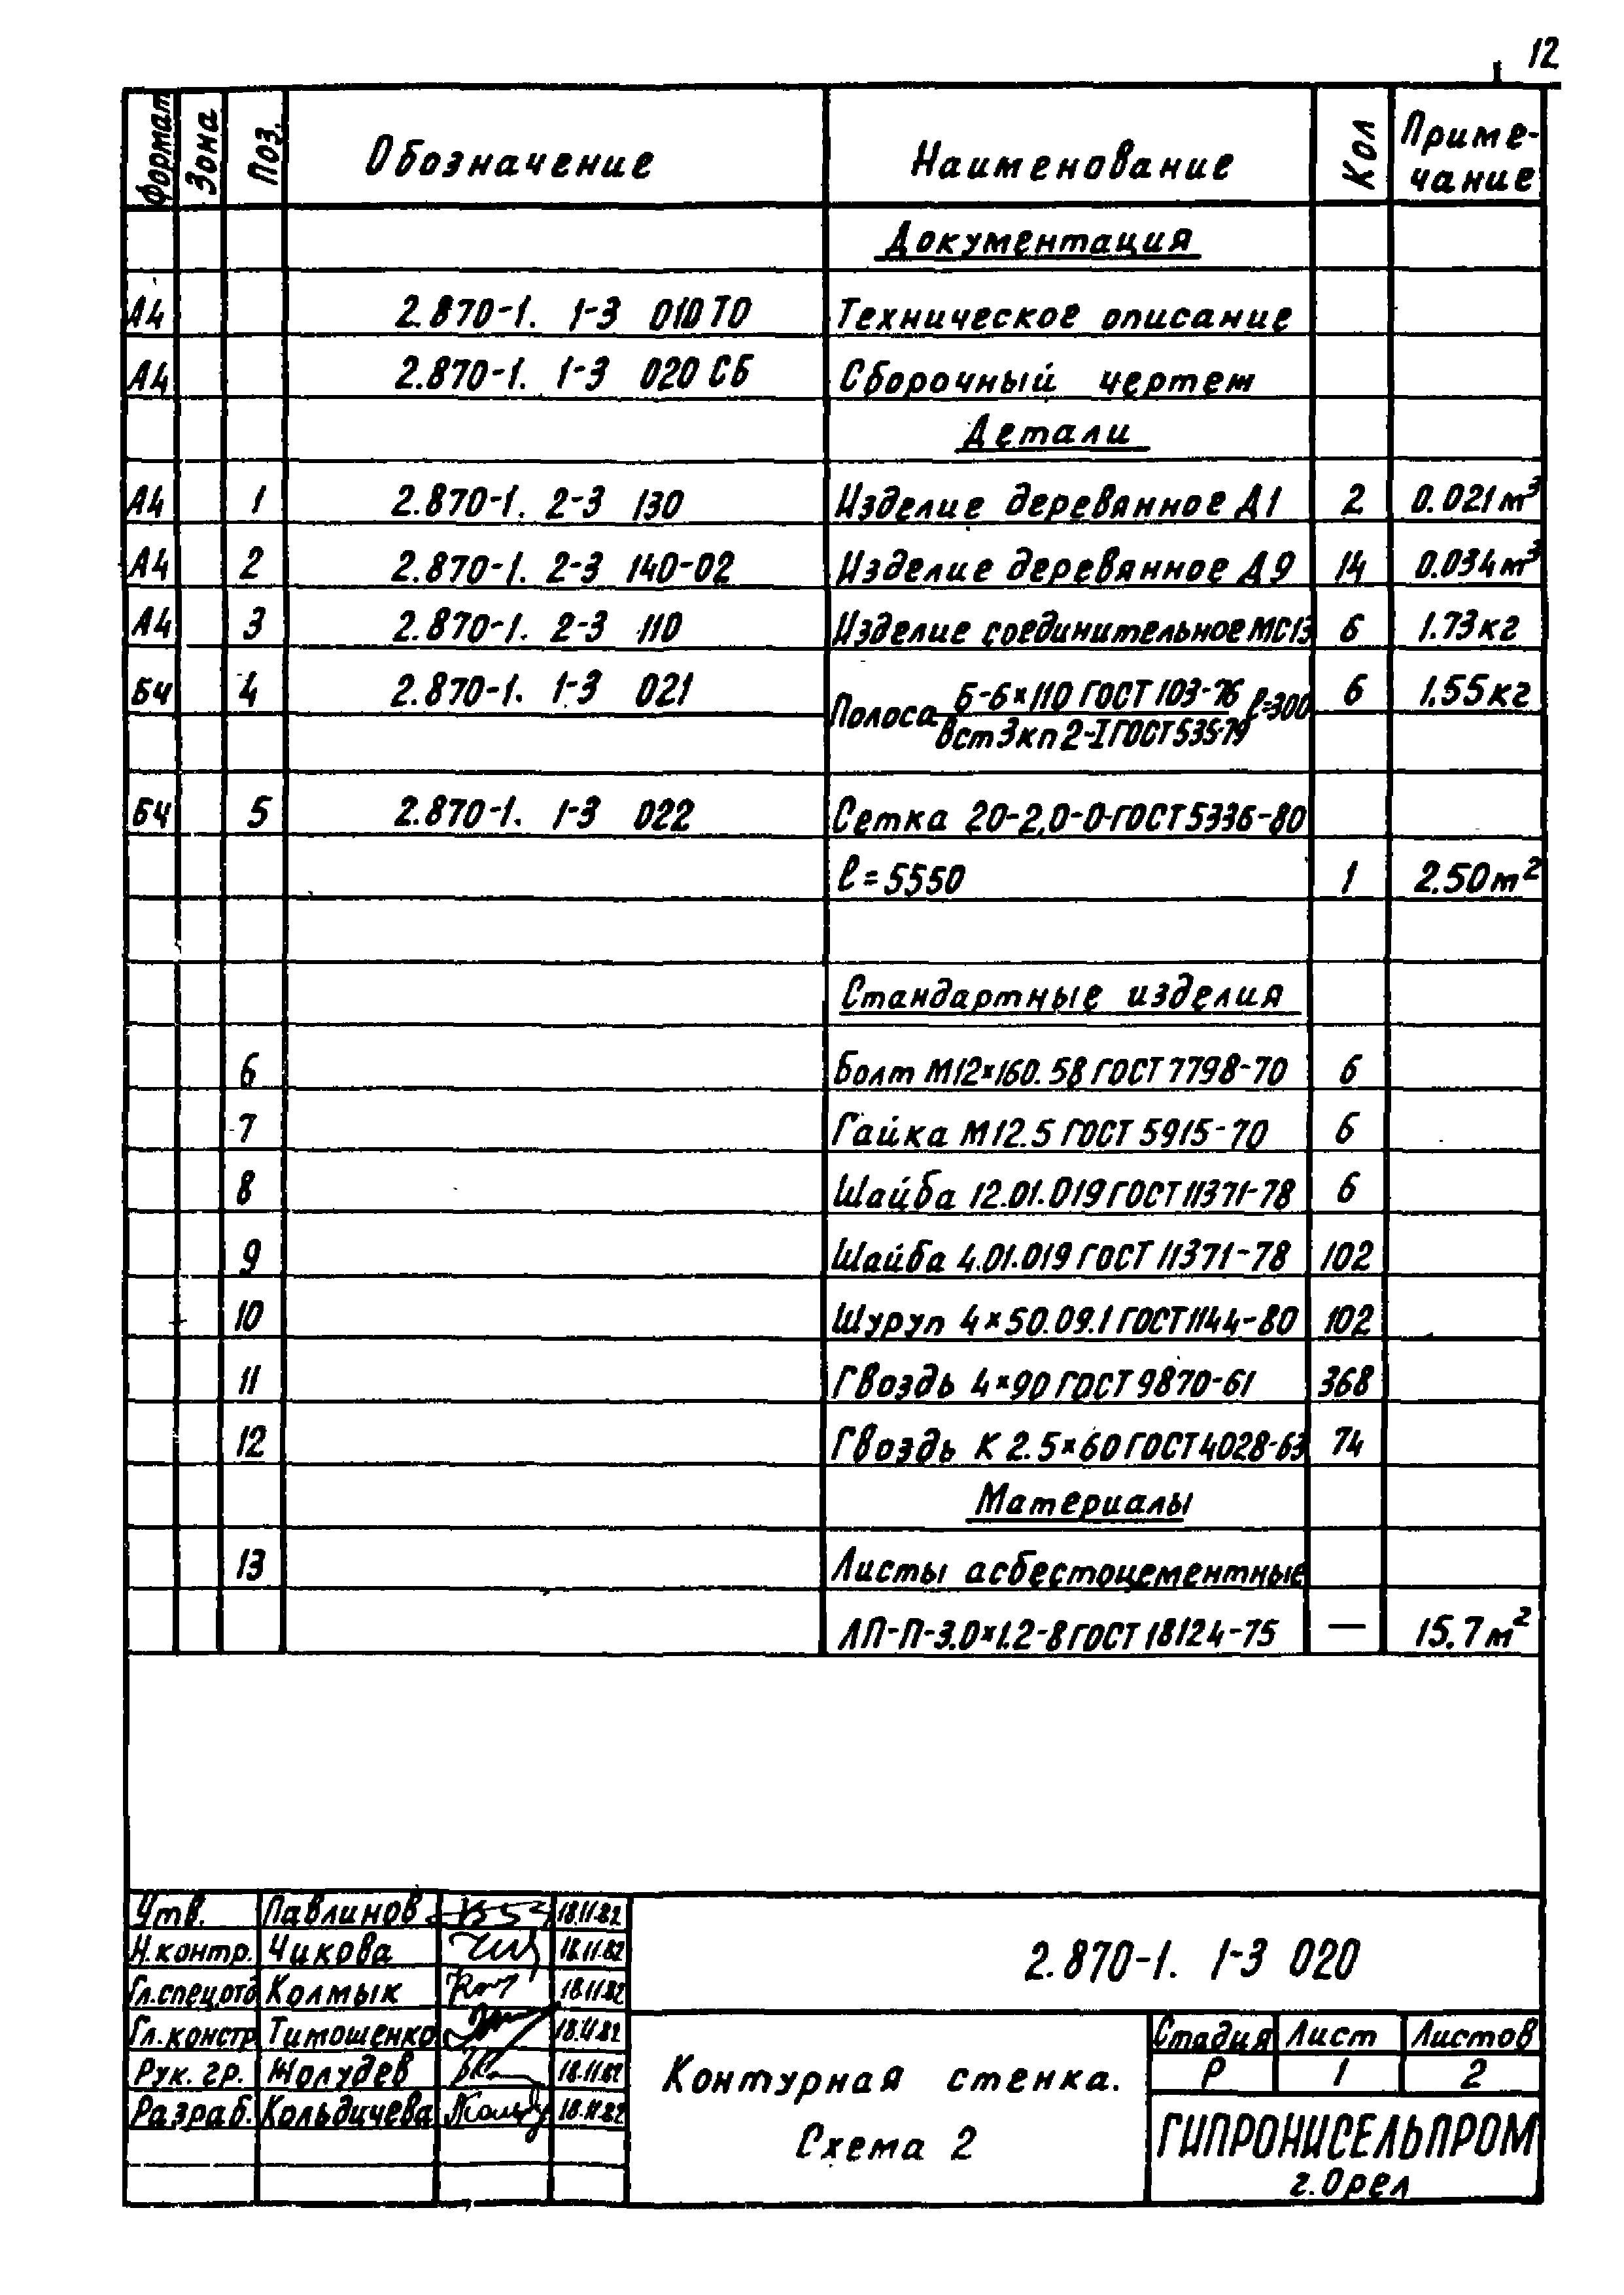 12
Формат Зона Поз. Обозначение Наименование Кол Приме-
чание
Документация
А4 2.870-1. 1-3 010 ТО Техническое описание
А4 2.870-1. 1-3 020 СБ Сборочный чертеж
Детали
А4 1 2.870-1. 2-3 130 Изделие деревянное Д1 2 0.021м³
А4 2 2.870-1. 2-3 140-02 Изделие деревянное Д9 14 0.034м³
А4 3 2.870-1. 2-3 110 Изделие соединительное МС13 6 1.73кг
БЧ 4 2.870-1. 1-3 021 Полоса Б-6×110 ГОСТ 103-76 ℓ=300 6 1.55кг
Вст3кп2-I ГОСТ 535-79
БЧ 5 2.870-1. 1-3 022 Сетка 20-2,0-0-ГОСТ 5336-80
ℓ=5550 1 2.50м²
Стандартные изделия
6 Болт М12×160.58 ГОСТ 7798-70 6
7 Гайка М12.5 ГОСТ 5915-70 6
8 Шайба 12.01.019 ГОСТ 11371-78 6
9 Шайба 4.01.019 ГОСТ 11371-78 102
10 Шуруп 4×50.09.1 ГОСТ 1144-80 102
11 Гвоздь 4×90 ГОСТ 9870-61 368
12 Гвоздь К 2.5×60 ГОСТ 4028-63 74
Материалы
13 Листы асбестоцементные
ЛП-П-3.0×1.2-8 ГОСТ 18124-75 — 15.7м²
Утв. Павлинов 18.11.82
Н.контр. Чикова 18.11.82
Гл.спец.отд Колмык 18.11.82
Гл.констр Тимошенко 18.11.82
Рук. гр. Жолудев 18.11.82
Разраб. Кольдичева 18.11.82
2.870-1. 1-3 020
Контурная стенка.
Схема 2
Стадия Лист Листов
Р 1 2
ГИПРОНИСЕЛЬПРОМ
г.Орел